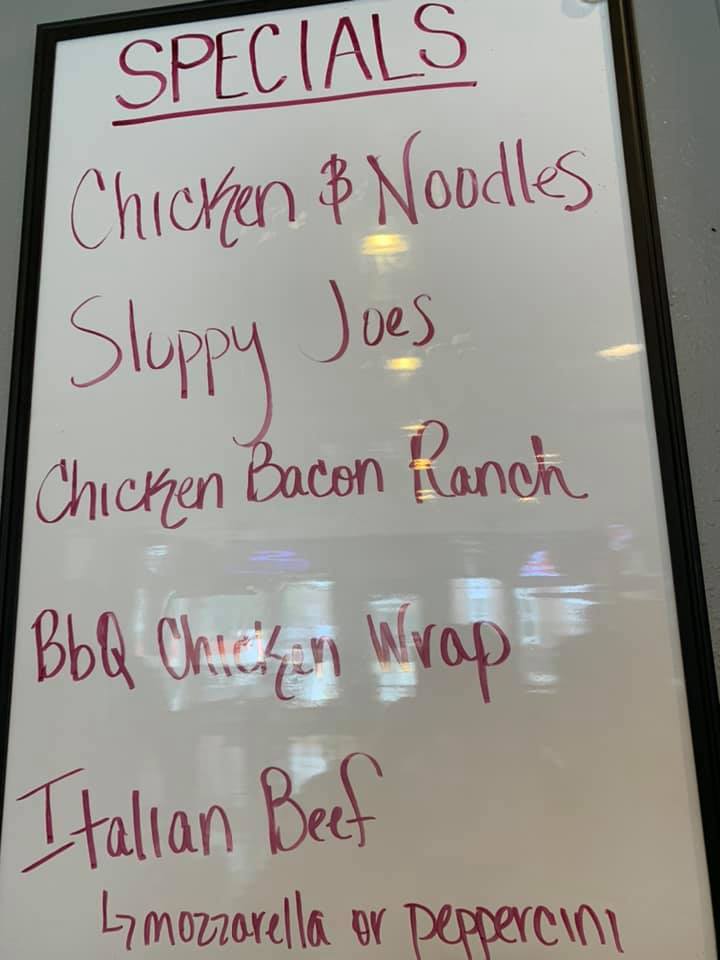 SPECIALS
Chicken & Noodles
Sloppy Joes
Chicken Bacon Ranch
BbQ Chicken Wrap
Italian Beef
↳ mozzarella or peppercini